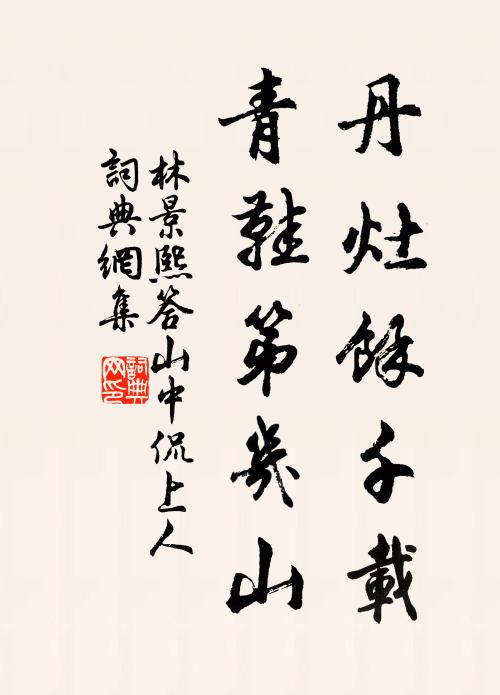 丹灶餘千載
青鞋第幾山
林景熙答山中侃上人
詞典網集
詞典
網印